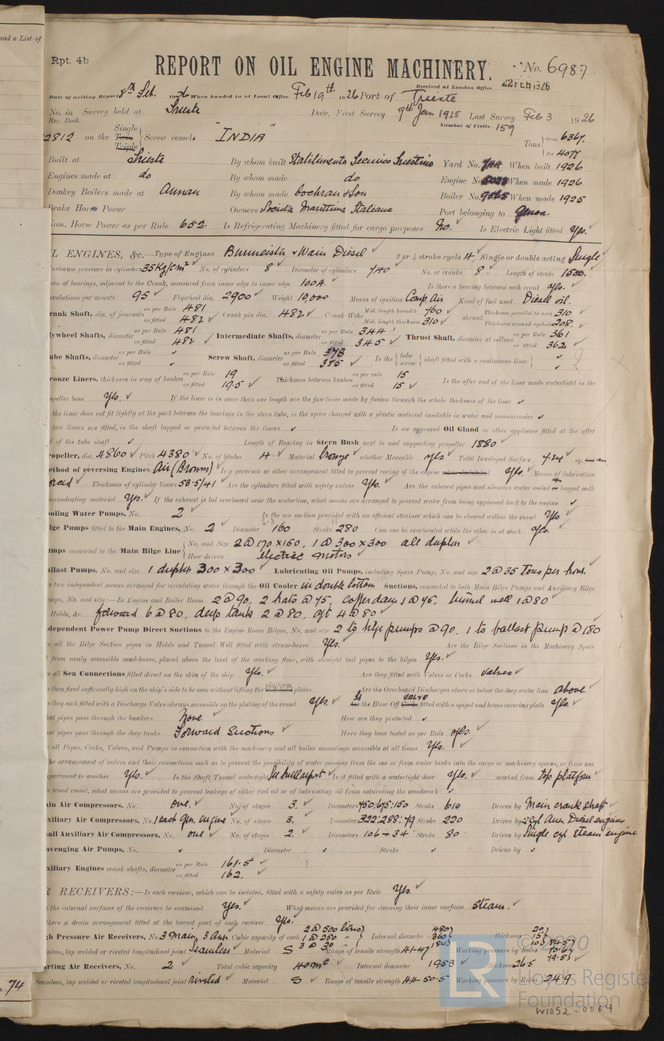 and a List of
Rpt. 4b
REPORT ON OIL ENGINE MACHINERY.
No. 6987
Received at London Office 22 FEB 1926
Date of writing Report 8th Feb When handed in at Local Office Feb 19th 1926 Port of Trieste
No. in Reg. Book. Survey held at Trieste Date, First Survey 9th Jan 1925 Last Survey Feb 3 1926
Number of Visits 159
2812 on the Single Twin Triple Screw vessel "INDIA" Tons 6367 4077
Built at Trieste By whom built Stabilimento Tecnico Triestino Yard No. When built 1926
Engines made at do By whom made do Engine No. When made 1926
Donkey Boilers made at Annan By whom made Cochran & Son Boiler No. When made 1925
Brake Horse Power Owners Societa Marittima Italiana Port belonging to Genoa
Nom. Horse Power as per Rule 652 Is Refrigerating Machinery fitted for cargo purposes No. Is Electric Light fitted Yes.
OIL ENGINES, &c.—Type of Engines Burmeister & Wain Diesel 2 or 4 stroke cycle 4 Single or double acting Single
Maximum pressure in cylinders 35 Kg/cm² No. of cylinders 8 Diameter of cylinders 740 No. of cranks 8 Length of stroke 1500
of bearings, adjacent to the Crank, measured from inner edge to inner edge 1004 Is there a bearing between each crank yes.
Revolutions per minute 95 Flywheel dia. 2900 Weight 10,000 Means of ignition Comp. Air Kind of fuel used Diesel oil.
Crank Shaft, dia. of journals as per Rule 481 as fitted 482 Crank pin dia. 482 Crank Webs Mid. length breadth 760 Mid. length thickness 310 shrunk Thickness parallel to axis 310 Thickness around eyehole 208
Flywheel Shafts, diameter as per Rule 481 as fitted 482 Intermediate Shafts, diameter as per Rule 344 as fitted 345 Thrust Shaft, diameter at collars as per Rule 361 as fitted 362
Tube Shafts, diameter as per Rule as fitted Screw Shaft, diameter as per Rule 378 as fitted 385 Is the tube screw shaft fitted with a continuous liner
Bronze Liners, thickness in way of bushes as per Rule 19 as fitted 19.5 Thickness between bushes as per rule 15 as fitted 15 Is the after end of the liner made watertight in the
propeller boss Yes. If the liner is in more than one length are the junctions made by fusion through the whole thickness of the liner
the liner does not fit tightly at the part between the bearings in the stern tube, is the space charged with a plastic material insoluble in water and noncorrosive
two liners are fitted, is the shaft lapped or protected between the liners Is an approved Oil Gland or other appliance fitted at the after
of the tube shaft Length of Bearing in Stern Bush next to and supporting propeller 1880
Propeller, dia. 4860 Pitch 4380 No. of blades 4 Material bronze whether Moveable yes Total Developed Surface 7.24 sq.
Method of reversing Engines Air (Brown) Is a governor or other arrangement fitted to prevent racing of the engine Yes. Means of lubrication
forced Thickness of cylinder liners 53.5/41 Are the cylinders fitted with safety valves Yes. Are the exhaust pipes and silencers water cooled or lagged with
non-conducting material Yes. If the exhaust is led overboard near the waterline, what means are arranged to prevent water from being syphoned back to the engine
Cooling Water Pumps, No. 2 Is the sea suction provided with an efficient strainer which can be cleared within the vessel Yes
Bilge Pumps fitted to the Main Engines, No. 2 Diameter 160 Stroke 280 Can one be overhauled while the other is at work yes.
Pumps connected to the Main Bilge Line No. and Size 2 @ 170 x 160, 1 @ 300 x 300 all duplex How driven electric motors
Ballast Pumps, No. and size 1 duplex 300 x 300 Lubricating Oil Pumps, including Spare Pump, No. and size 2 @ 35 tons per hour.
two independent means arranged for circulating water through the Oil Cooler in double bottom Suctions, connected to both Main Bilge Pumps and Auxiliary Bilge
Pumps, No. and size:—In Engine and Boiler Room 2 @ 90, 2 hats @ 75, cofferdams 1 @ 75, tunnel well 1 @ 80
Holds, &c. forward 6 @ 80, deep tank 2 @ 80, aft 4 @ 80
Independent Power Pump Direct Suctions to the Engine Room Bilges, No. and size 2 to bilge pumps @ 90, 1 to ballast pump @ 150
all the Bilge Suction pipes in Holds and Tunnel Well fitted with strum-boxes Yes. Are the Bilge Suctions in the Machinery Space
from easily accessible mud-boxes, placed above the level of the working floor, with straight tail pipes to the bilges Yes.
all Sea Connections fitted direct on the skin of the ship Yes. Are they fitted with Valves or Cocks valves
they fixed sufficiently high on the ship's side to be seen without lifting the platform plates Are the Overboard Discharges above or below the deep water line above
they each fitted with a Discharge Valve always accessible on the plating of the vessel Yes. Is the Blow Off fitted with a spigot and brass covering plate Yes.
What pipes pass through the bunkers None How are they protected
What pipes pass through the deep tanks Forward suctions Have they been tested as per Rule yes.
all Pipes, Cocks, Valves, and Pumps in connection with the machinery and all boiler mountings accessible at all times Yes.
the arrangement of valves and their connections such as to prevent the possibility of water passing from the sea or from water tanks into the cargo or machinery spaces, or from one
compartment to another Yes. Is the Shaft Tunnel watertight See hull report Is it fitted with a watertight door Yes. worked from top platform
a wood vessel, what means are provided to prevent leakage of either fuel oil or of lubricating oil from saturating the woodwork
Main Air Compressors, No. one. No. of stages 3. Diameters 750.675.150 Stroke 610 Driven by Main crank shaft
Auxiliary Air Compressors, No. 1 each gen. engine No. of stages 3. Diameters 322.288.79 Stroke 220 Driven by 2 Cyl. Aux. Diesel engines
Small Auxiliary Air Compressors, No. one No. of stages 2. Diameters 106-34 Stroke 80 Driven by Single cyl steam engine
Scavenging Air Pumps, No. Diameter Stroke Driven by
Auxiliary Engines crank shafts, diameter as per Rule 161.5 as fitted 162.
AIR RECEIVERS:—Is each receiver, which can be isolated, fitted with a safety valve as per Rule Yes
the internal surfaces of the receiver be examined Yes. What means are provided for cleaning their inner surfaces steam.
there a drain arrangement fitted at the lowest part of each receiver Yes.
High Pressure Air Receivers, No. 3 main, 3 Aux Cubic capacity of each 2 @ 500 1 @ 250 3 @ 20 Internal diameter 480 360 thickness 20
Seamless, lap welded or riveted longitudinal joint Seamless Material S Range of tensile strength 41-47 Working pressure by Rules
Starting Air Receivers, No. 2 Total cubic capacity 40 m³ Internal diameter 1953 thickness 26.5
Seamless, lap welded or riveted longitudinal joint riveted Material S Range of tensile strength 44.50.5 Working pressure by Rules 24.9
.74
© 2020
Lloyd's Register
Foundation
W1052-0064